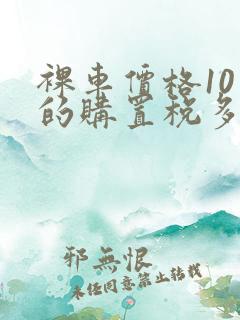 裸車價格10
的購置稅多
邪無恨
未經同意禁止轉載